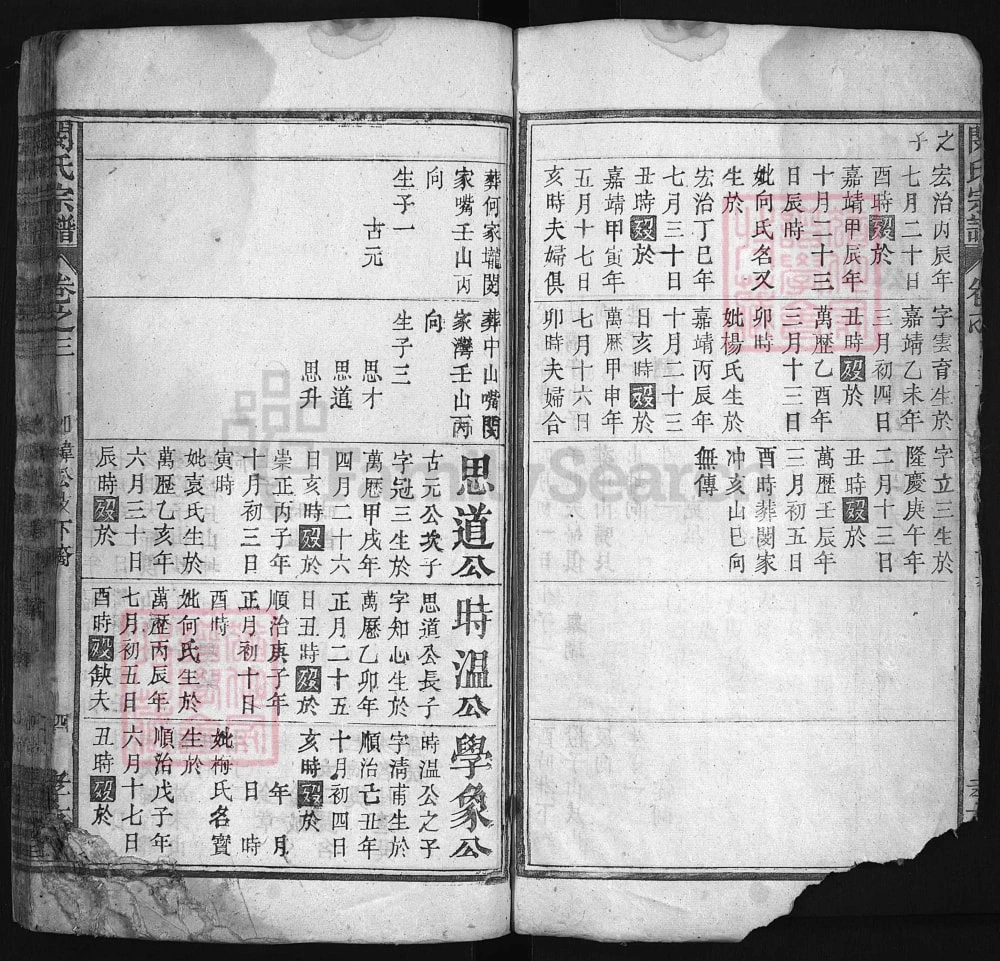 之
子
宏治丙辰年
七月二十日
酉時歿於
嘉靖甲辰年
十月二十三
日辰時
妣向氏名又
生於
宏治丁巳年
七月三十日
丑時歿於
嘉靖甲寅年
五月十七日
亥時夫婦俱
字雲育生於
嘉靖乙未年
三月初四日
丑時歿於
萬歷乙酉年
三月十三日
卯時
妣楊氏生於
嘉靖丙辰年
十月二十三
日亥時歿於
萬歷甲申年
七月十六日
卯時夫婦合
字立三生於
隆慶庚午年
二月十三日
丑時歿於
萬歷壬辰年
三月初五日
酉時葬閔家
冲亥山巳向
無傳
葬何家壠閔
家嘴壬山丙
向
生子一
古元
葬中山嘴閔
家灣壬山丙
向
生子三
思才
思道
思升
思道公
古元公次子
字冠三生於
萬歷甲戌年
四月二十六
日亥時歿於
崇正丙子年
十月初三日
寅時
妣袁氏生於
萬歷乙亥年
六月三十日
辰時歿於
時溫公
思道公長子
字知心生於
萬歷乙卯年
正月二十五
日丑時歿於
順治庚子年
正月初十日
酉時
妣何氏生於
萬歷丙辰年
七月初五日
酉時歿缺夫
學象公
時溫公之子
字清甫生於
順治己丑年
十月初四日
亥時歿於
年 月
日 時
妣梅氏名寶
生於
順治戊子年
六月十七日
丑時歿於
閔氏宗譜
卷之三
四
FamilySearch